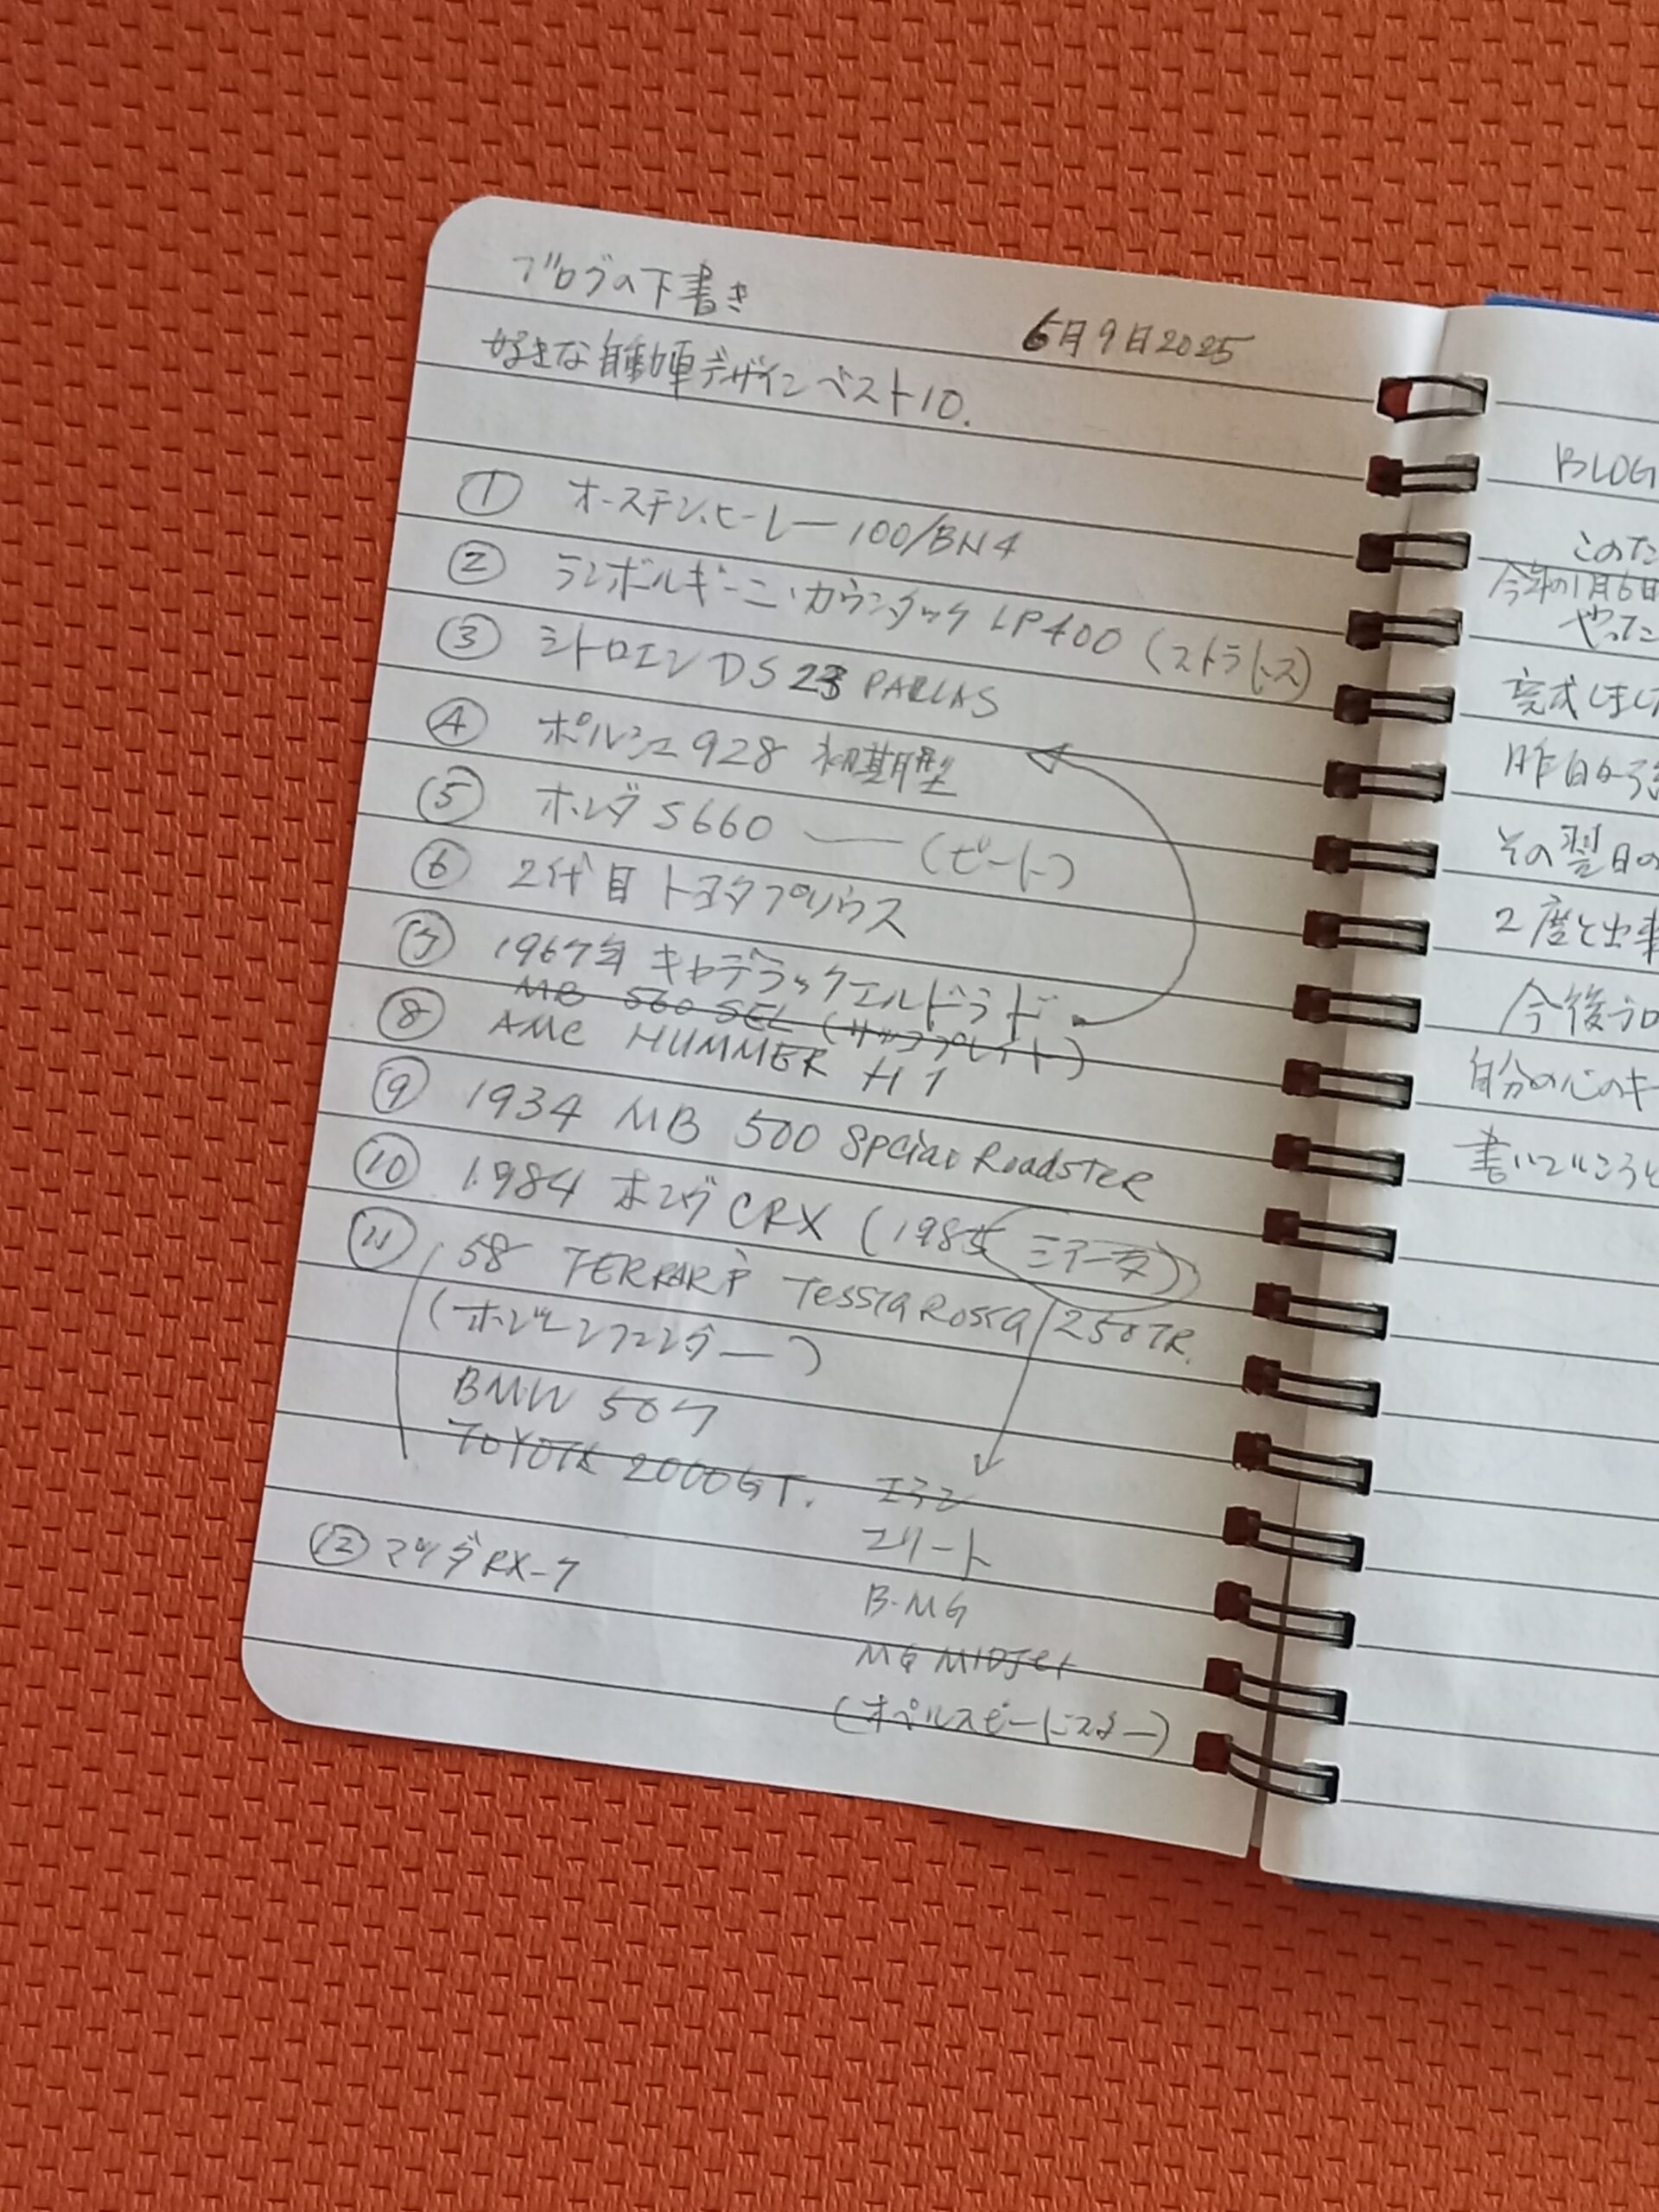 ブログの下書き
6月9日2025
好きな自動車デザインベスト10.
① オースチン・ヒーレー100/BN4
② ランボルギーニ・カウンタックLP400(ストラトス)
③ シトロエンDS23 PARLAS
④ ポルシェ928 初期型
⑤ ホンダS660 ―(ビート)
⑥ 2代目トヨタプリウス
⑦ 1967年キャデラックエルドラド
MB 560 SEL (サッコプレート)
⑧ AMC HUMMER H1
⑨ 1934 MB 500 Spcial Roadster
⑩ 1984 ホンダCRX (1985 ミアータ)
⑪ 58 FERRARi TessTa Rossa/250TR.
(ポンツーンフェンダー)
BMW 507
TOYOTA 2000GT.
エラン
エリート
B-MG
MG MIDJet
(オペルスピードスター)
⑫ マツダRX-7
BLOG
このた
今年の1月6日
やった
完成しまし
昨日から
その翌日の
2度と出来
今後
自分の心のキ
書いていこうと